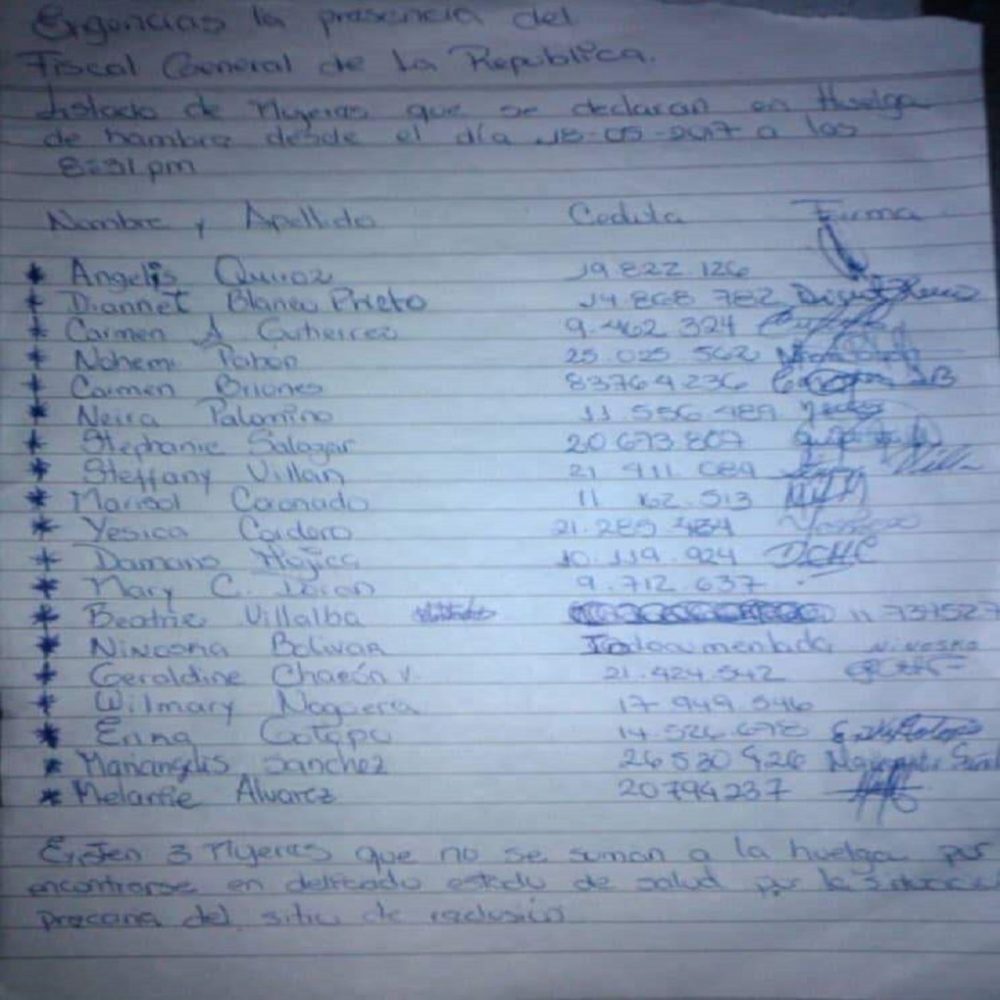 Exigencias la presencia del
Fiscal General de La Republica.
Listado de Mujeres que se declaran en Huelga
de hambre desde el día 18-05-2017 a las
8:31 pm
Nombre y Apellido Cedula Firma
* Angelis Quiroz 19.822.126
* Diannet Blanco Prieto 14.868.782
* Carmen A Gutierrez 9.462.324
* Nohemi Pabon 25.025.562
* Carmen Briones 83764236 B
* Neira Palomino 11.556.489
* Stephanie Salazar 20.673.809
* Steffany Villan 21.411.089
* Marisol Coronado 11 162.513
* Yesica Cordero 21.289.484
* Damaris Mojica 10.119.924 DCMC
* Mary C. 9.712.637
* Beatriz Villalba 11 737527
* Bolivar Indocumentada
* Geraldine Chacón V. 21.424.542
* Wilmary Noguera 17.949.546
* Erina Cotopu 14.526.678
* Mariangelis Sanchez 26530426
* Melanie Alvarez 20794237
Existen 3 Mujeres que no se suman a la huelga por
encontrarse en delicado estado de salud por la
precaria del sitio de reclusión